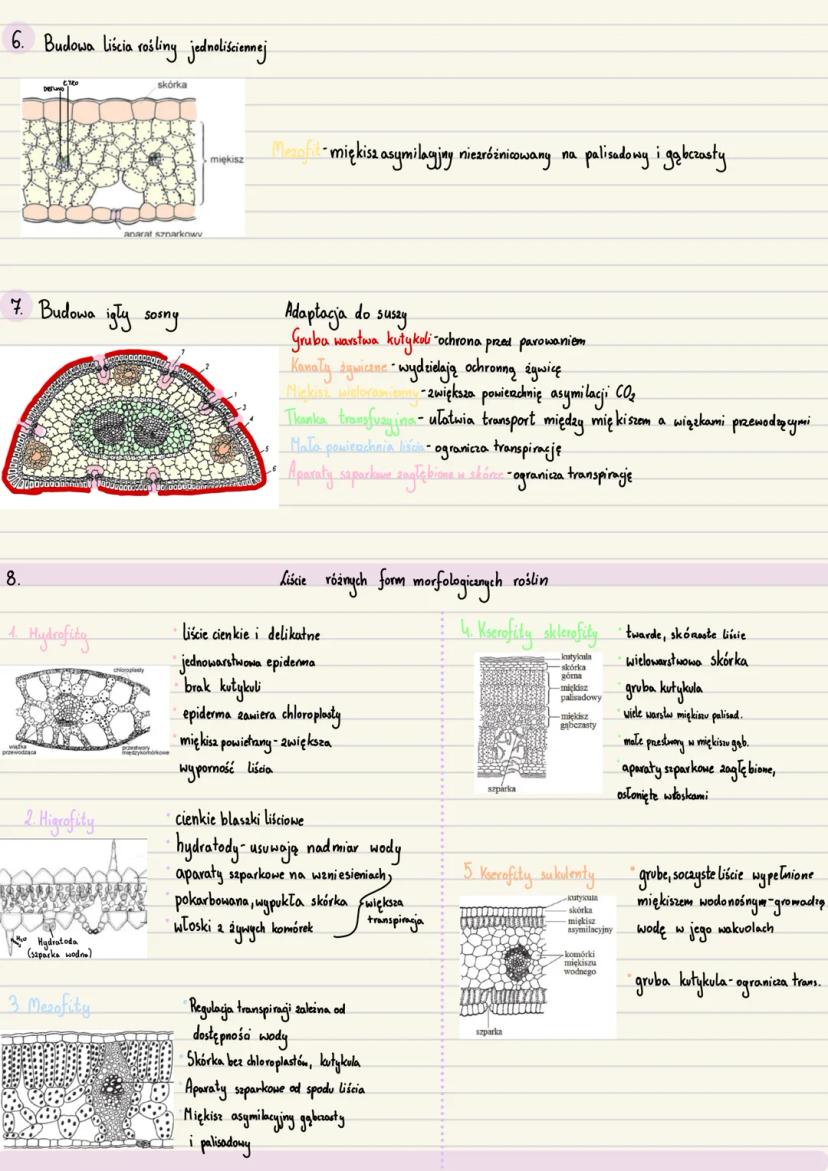 6. Budowa liścia rośliny jednoliściennej
DREWNO
ŁYKO
skórka
miękisz
aparat szparkowy
Mezofit - miękisz asymilacyjny niezróżnicowany na palisadowy i gąbczasty
7. Budowa igły sosny
7
2
1
3
4
5
6
Adaptacja do suszy
Gruba warstwa kutykuli - ochrona przed parowaniem
Kanały żywiczne - wydzielają ochronną żywicę
Miękisz wieloramienny - zwiększa powierzchnię asymilacji CO₂
Tkanka transfuzyjna - ułatwia transport między miękiszem a wiązkami przewodzącymi
Mała powierzchnia liścia - ogranicza transpirację
Aparaty szparkowe zagłębione w skórce - ogranicza transpirację
8. Liście różnych form morfologicznych roślin
1. Hydrofity
chloroplasty
wiązka
przewodząca
przestwory
międzykomórkowe
• liście cienkie i delikatne
• jednowarstwowa epiderma
• brak kutykuli
• epiderma zawiera chloroplasty
• miękisz powietrzny - zwiększa
wyporność liścia
2. Higrofity
H₂O
Hydatoda
(szparka wodna)
• cienkie blaszki liściowe
• hydratody - usuwają nadmiar wody
• aparaty szparkowe na wzniesieniach
• pokarbowana, wypukła skórka
• włoski z żywych komórek
większa
transpiracja
3. Mezofity
• Regulacja transpiracji zależna od
dostępności wody
• Skórka bez chloroplastów, kutykula
• Aparaty szparkowe od spodu liścia
• Miękisz asymilacyjny gąbczasty
i palisadowy
4. Kserofity sklerofity
kutykula
skórka
górna
miękisz
palisadowy
miękisz
gąbczasty
szparka
• twarde, skórzaste liście
• wielowarstwowa skórka
• gruba kutykula
• wiele warstw miękiszu palisad.
• małe przestwory w miękiszu gąb.
• aparaty szparkowe zagłębione,
osłonięte włoskami
5. Kserofity sukulenty
kutykula
skórka
miękisz
asymilacyjny
komórki
miękiszu
wodnego
szparka
• grube, soczyste liście wypełnione
miękiszem wodonośnym - gromadzą
wodę w jego wakuolach
• gruba kutykula - ogranicza trans.